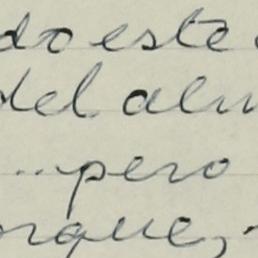 do este
del alm
...pero
rque,